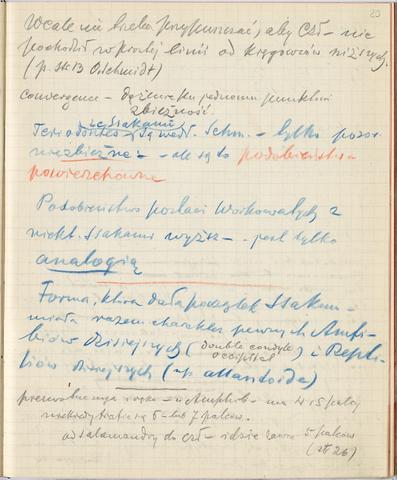 20
Wcale nie trzeba przypuszczać, aby Czł - nie
pochodził w prostej linii od kręgowców niższych.
(p. str 13 O. Schmidt)
Convergence - dążenie ku jednemu punktowi
zbieżność.
ze Ssakami
Teriodontes - są wedł. Schm. - tylko pozor.
niezbieżne - ale są to podobieństwa
powierzchowne
Podobieństwo postaci Workowatych z
niekt. Ssakami wyższ - jest tylko
analogią
Forma, która dała początek Ssakom -
miała razem charakter pewnych Amfi-
biów dzisiejszych (double condyle
occipital) i Repti-
liów dzisiejszych (np. allantoida)
ręka - u Amphib - ma 4 i 5 palcy
niekiedy trafia się 6 - lub 7 palców.
od salamandry do czł - idzie 5 palców
(str 26)